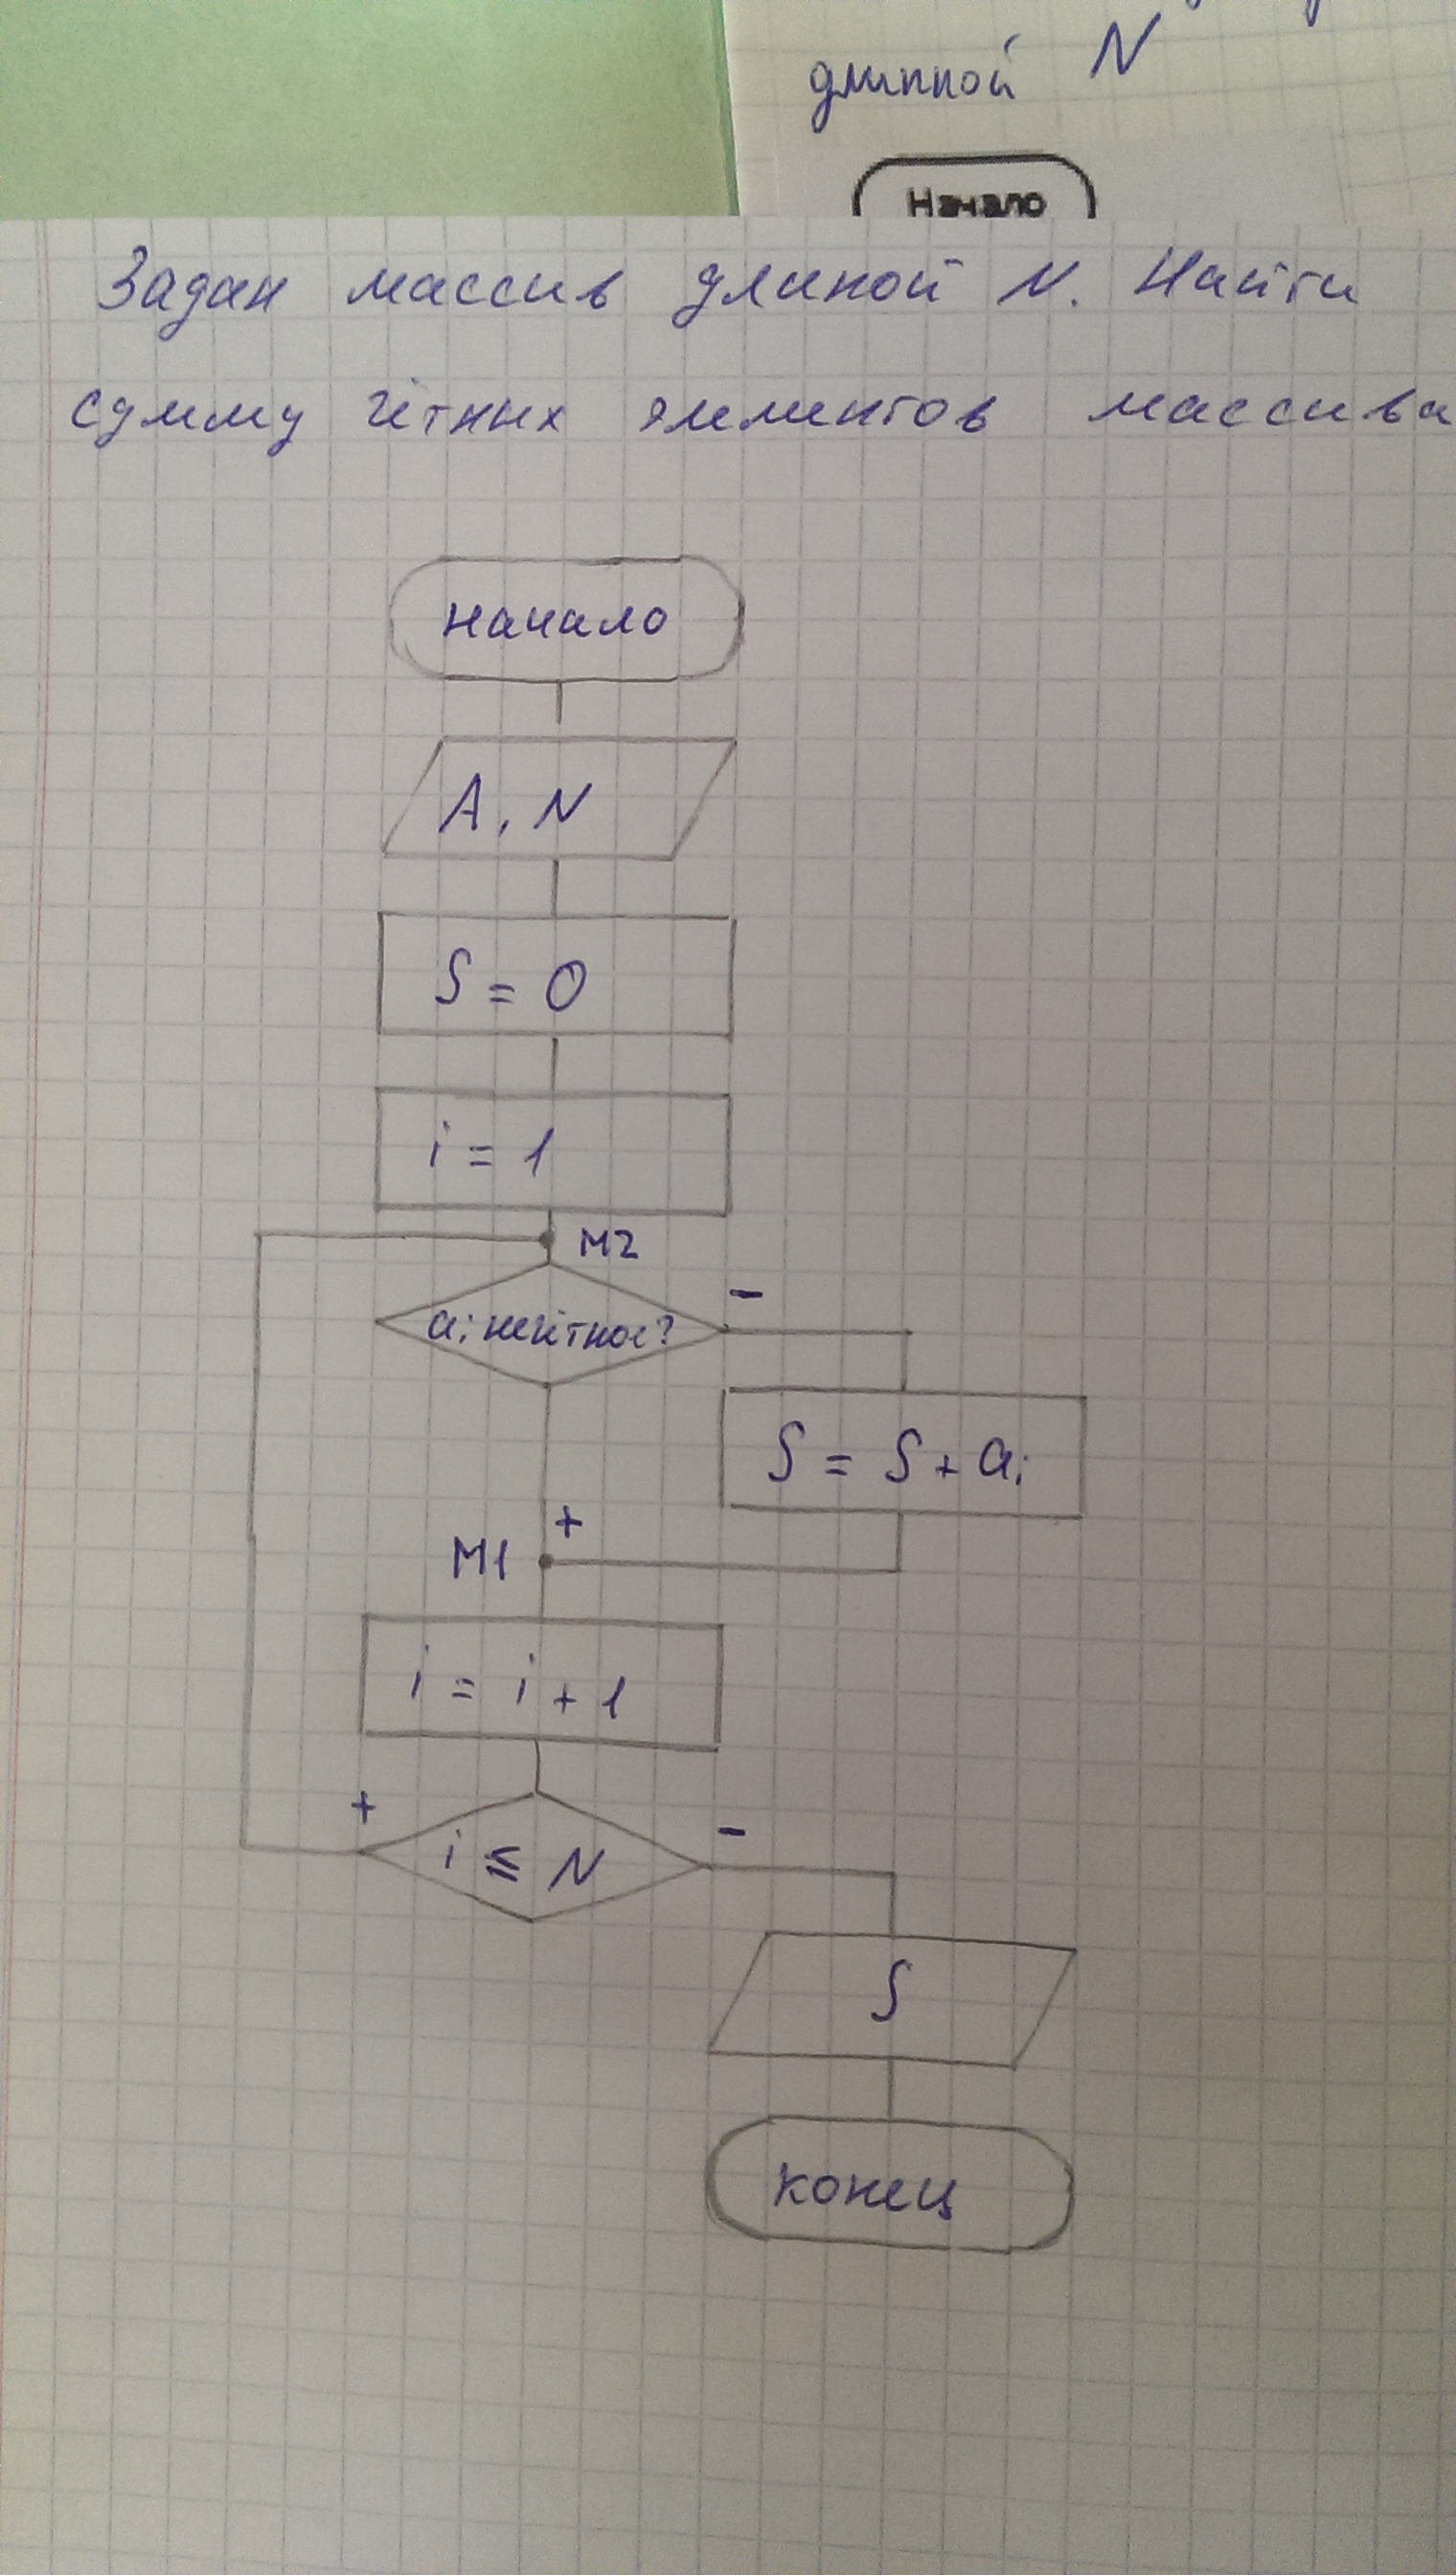 длинной N
Начало
Задан массив длиной N. Найти
сумму чётных элементов массива
начало
A, N
S = 0
i = 1
M2
-
ai нечётное?
S = S + ai
+
M1
i = i + 1
+
-
i ≤ N
S
конец